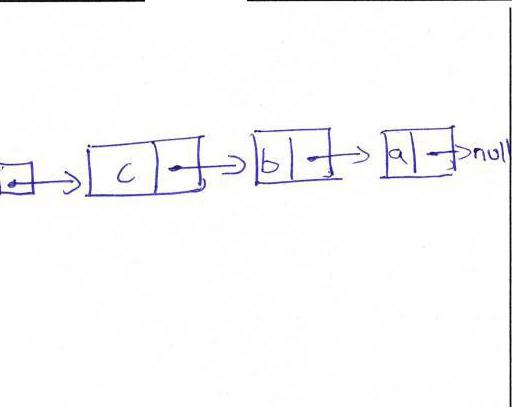 c b a null